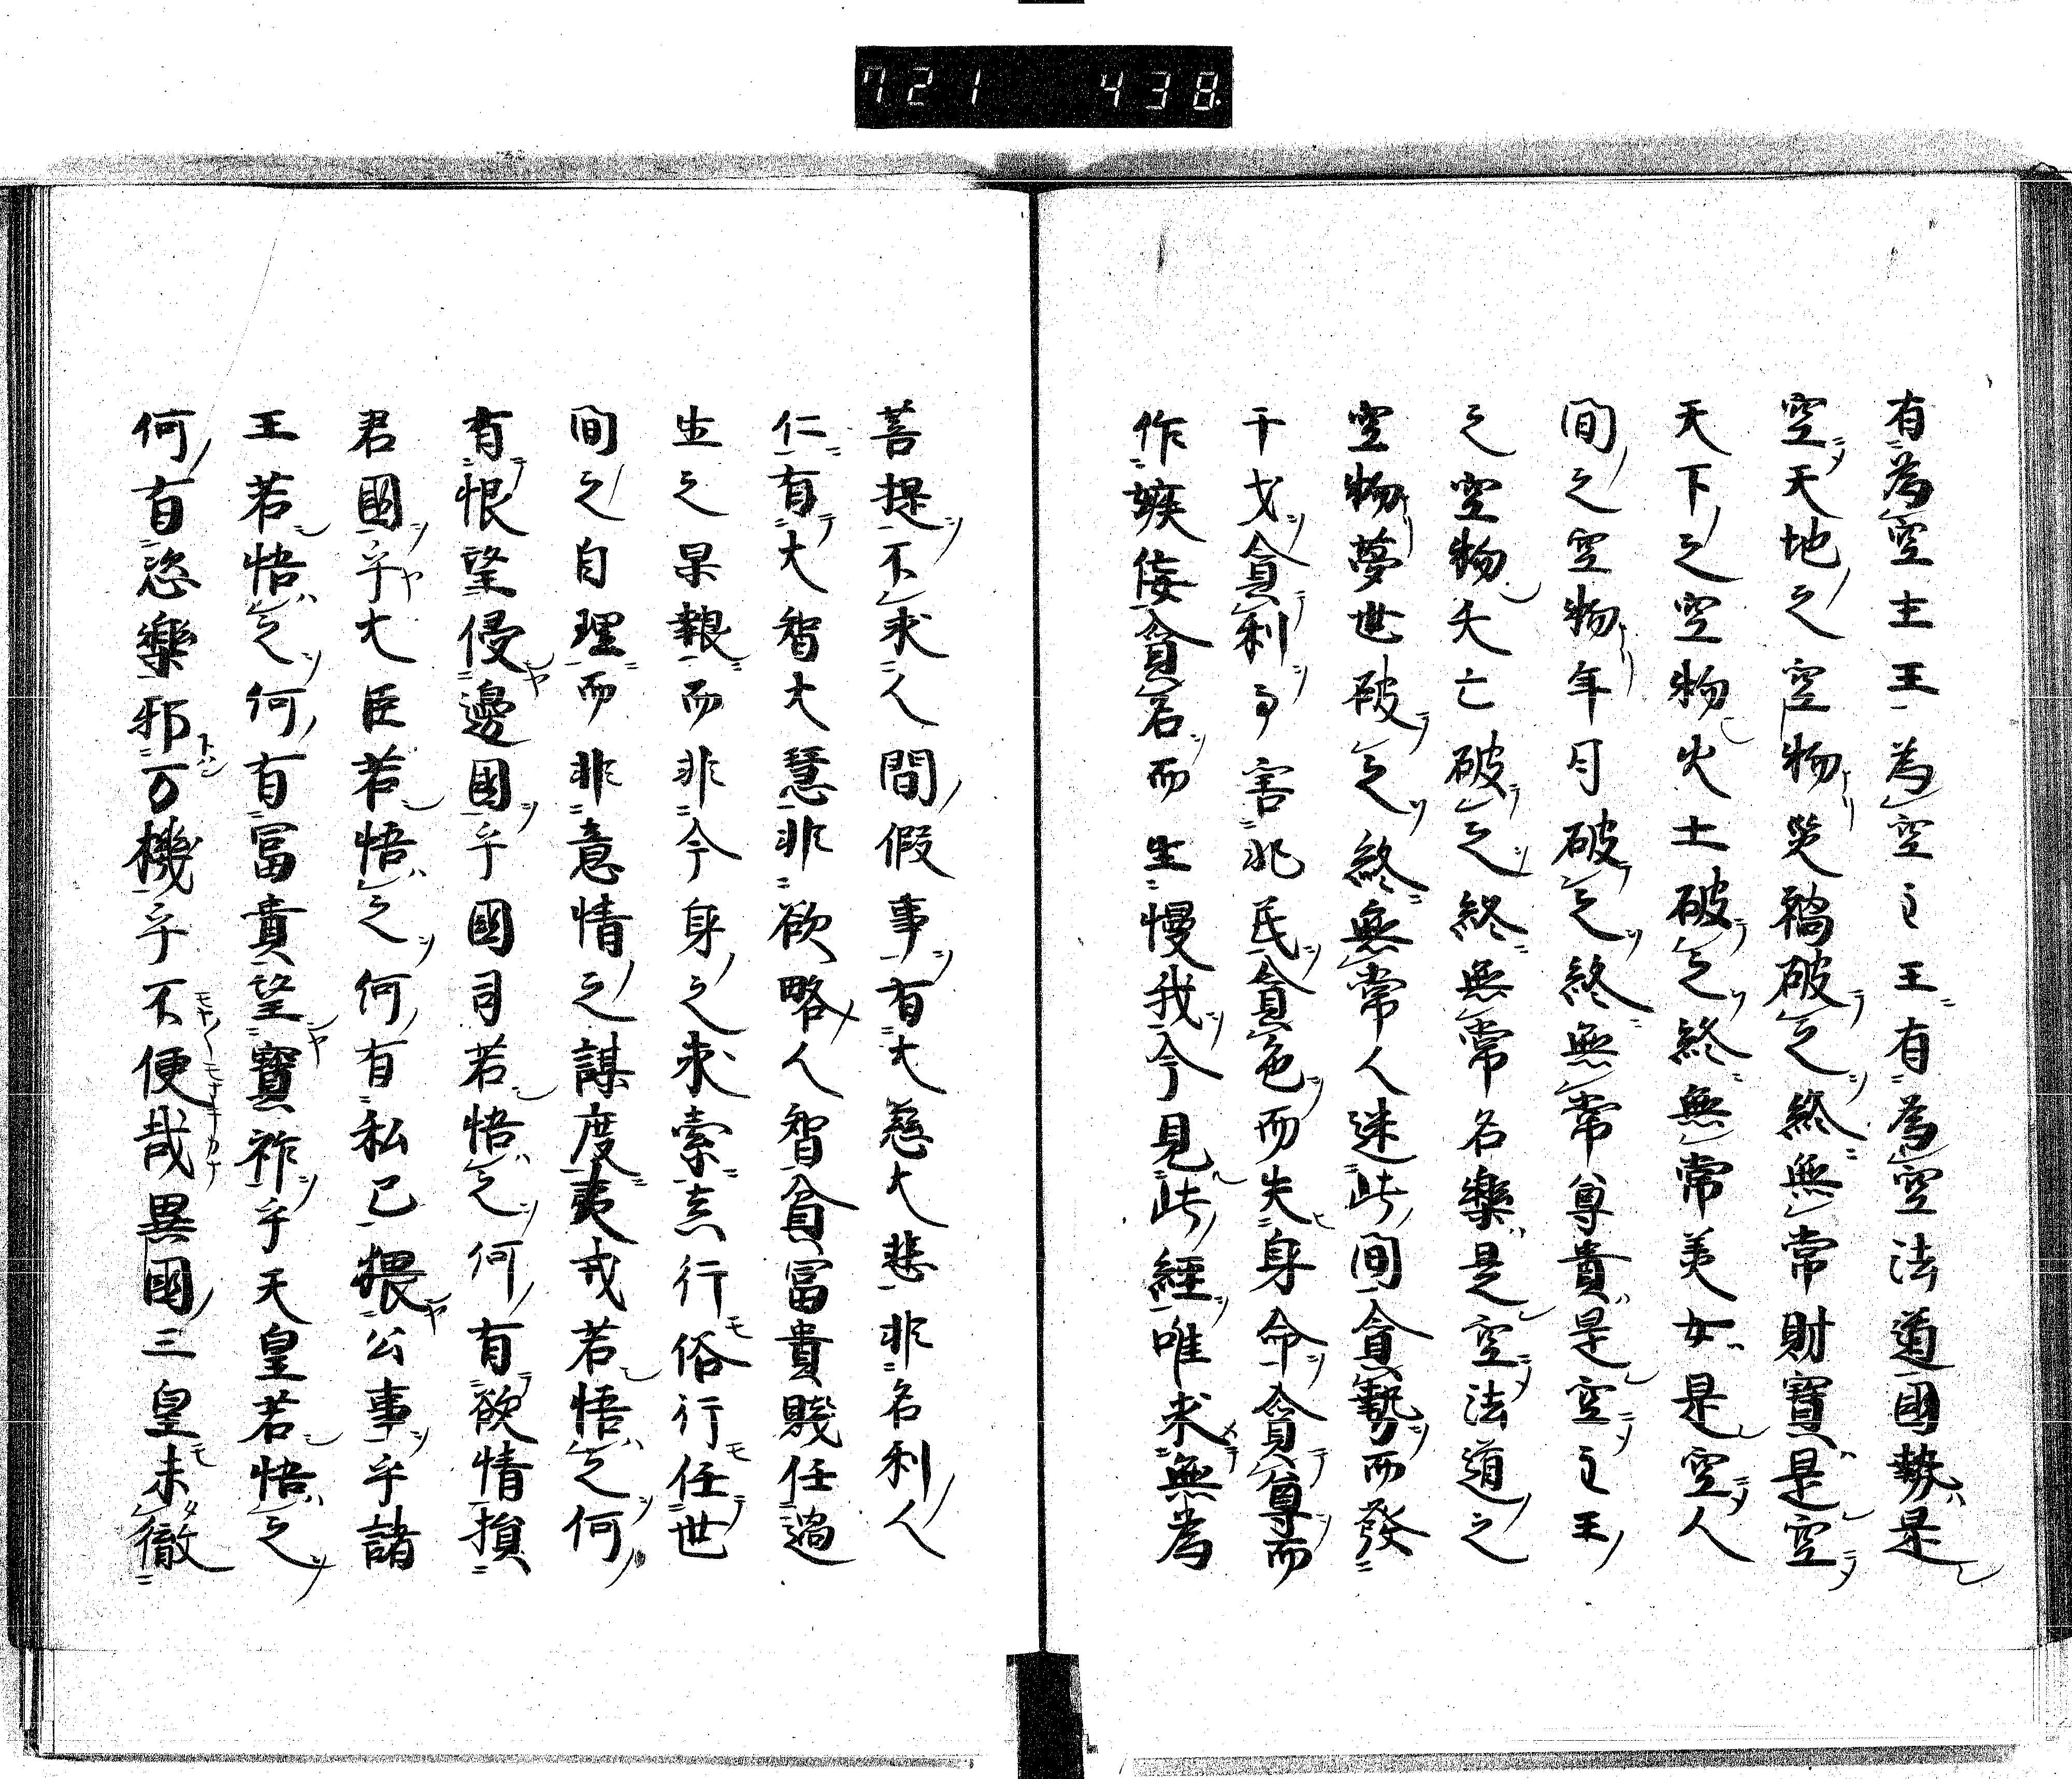 721 438
有為空主王為空之王有為空法道国勢是
空天地之空物災禍破之終無常財寶是空
天下之空物火土破之終無常美女是空人
間之空物年月破之終無常尊貴是空之王
之空物失亡破之終無常名樂是空法道之
空物夢世破之終無常人迷此間貪勢而發
干戈貪利而害兆民貪色而失身命貪尊而
作嫉佞貪名而生慢我今見此經唯求無為
菩提不求人間假事有大慈大悲非名利人
仁有大智大慧非欲略人智貧冨貴賤任過
生之果報而非今身之求索志行俗行任世
間之自理而非意情之謀度夷戎若悟之何
有恨望侵邊國乎國司若悟之何有欲情損
君國乎大臣若悟之何有私己猥公事乎諸
王若悟之何有冨貴望寶祚乎天皇若悟之
何有恣樂邪万機乎不便哉異國三皇未徹